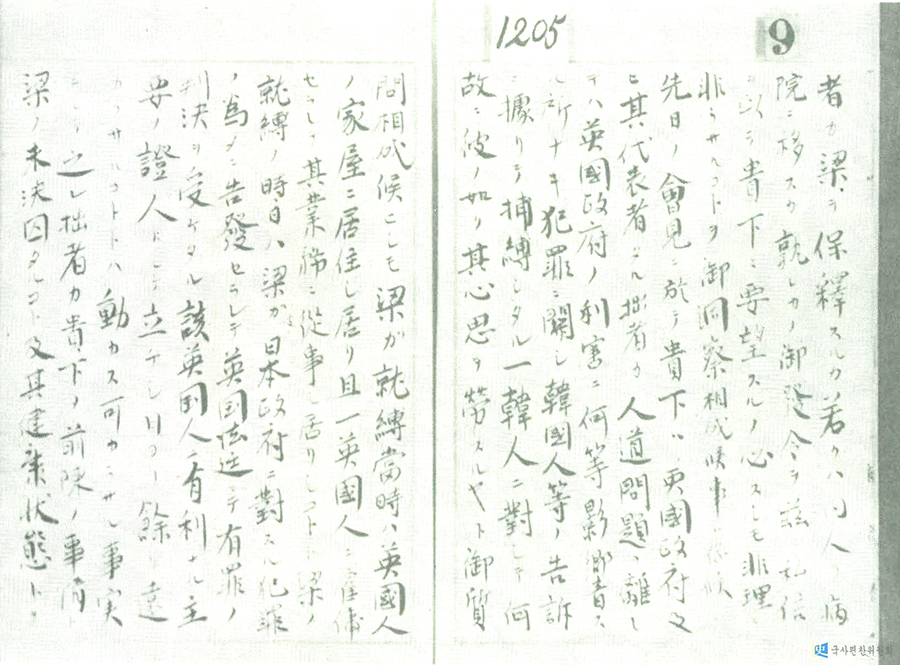 9
1205
者カ梁ヲ保釋スルカ若クハ同人ヲ病
院ニ移スカ孰レカノ御發令ヲ茲ニ
以テ貴下ニ要望スルノ必スシモ非理ニ
非ラサルコトヲ御洞察相成
先日ノ會見ニ於テ貴下ハ英國政府又
ヒ其代表者タル拙者カ人道問題ヲ離レ
テハ英國政府ノ利害ニ何等影響
ル所ナキ犯罪ニ關シ韓國人等ノ告訴
ニ據リテ捕縛シタル一韓人ニ對シテ何
故ニ彼ノ如ク其心思ヲ勞スルヤト御質
問相成候ヒしモ梁が就縛當時ハ英國人
ノ家屋ニ居住し居リ且一英國人ニ雇
セラレテ其業務ニ從事し居リしコト梁ノ
就縛ノ時日ハ梁が日本政府ニ對スル犯罪
ノ為メニ告發セラレテ英国法廷ニテ有罪ノ
判決ヲ受ケタル該英国人ニ有利ナル主
要ノ證人トして立チし日ヨリ餘リ遠
カラサルコトハ動カス可カラサル事実
之レ拙者カ貴下ノ前陳ノ事
梁ノ未決囚タルコト又其健康状態ト
국사편찬위원회